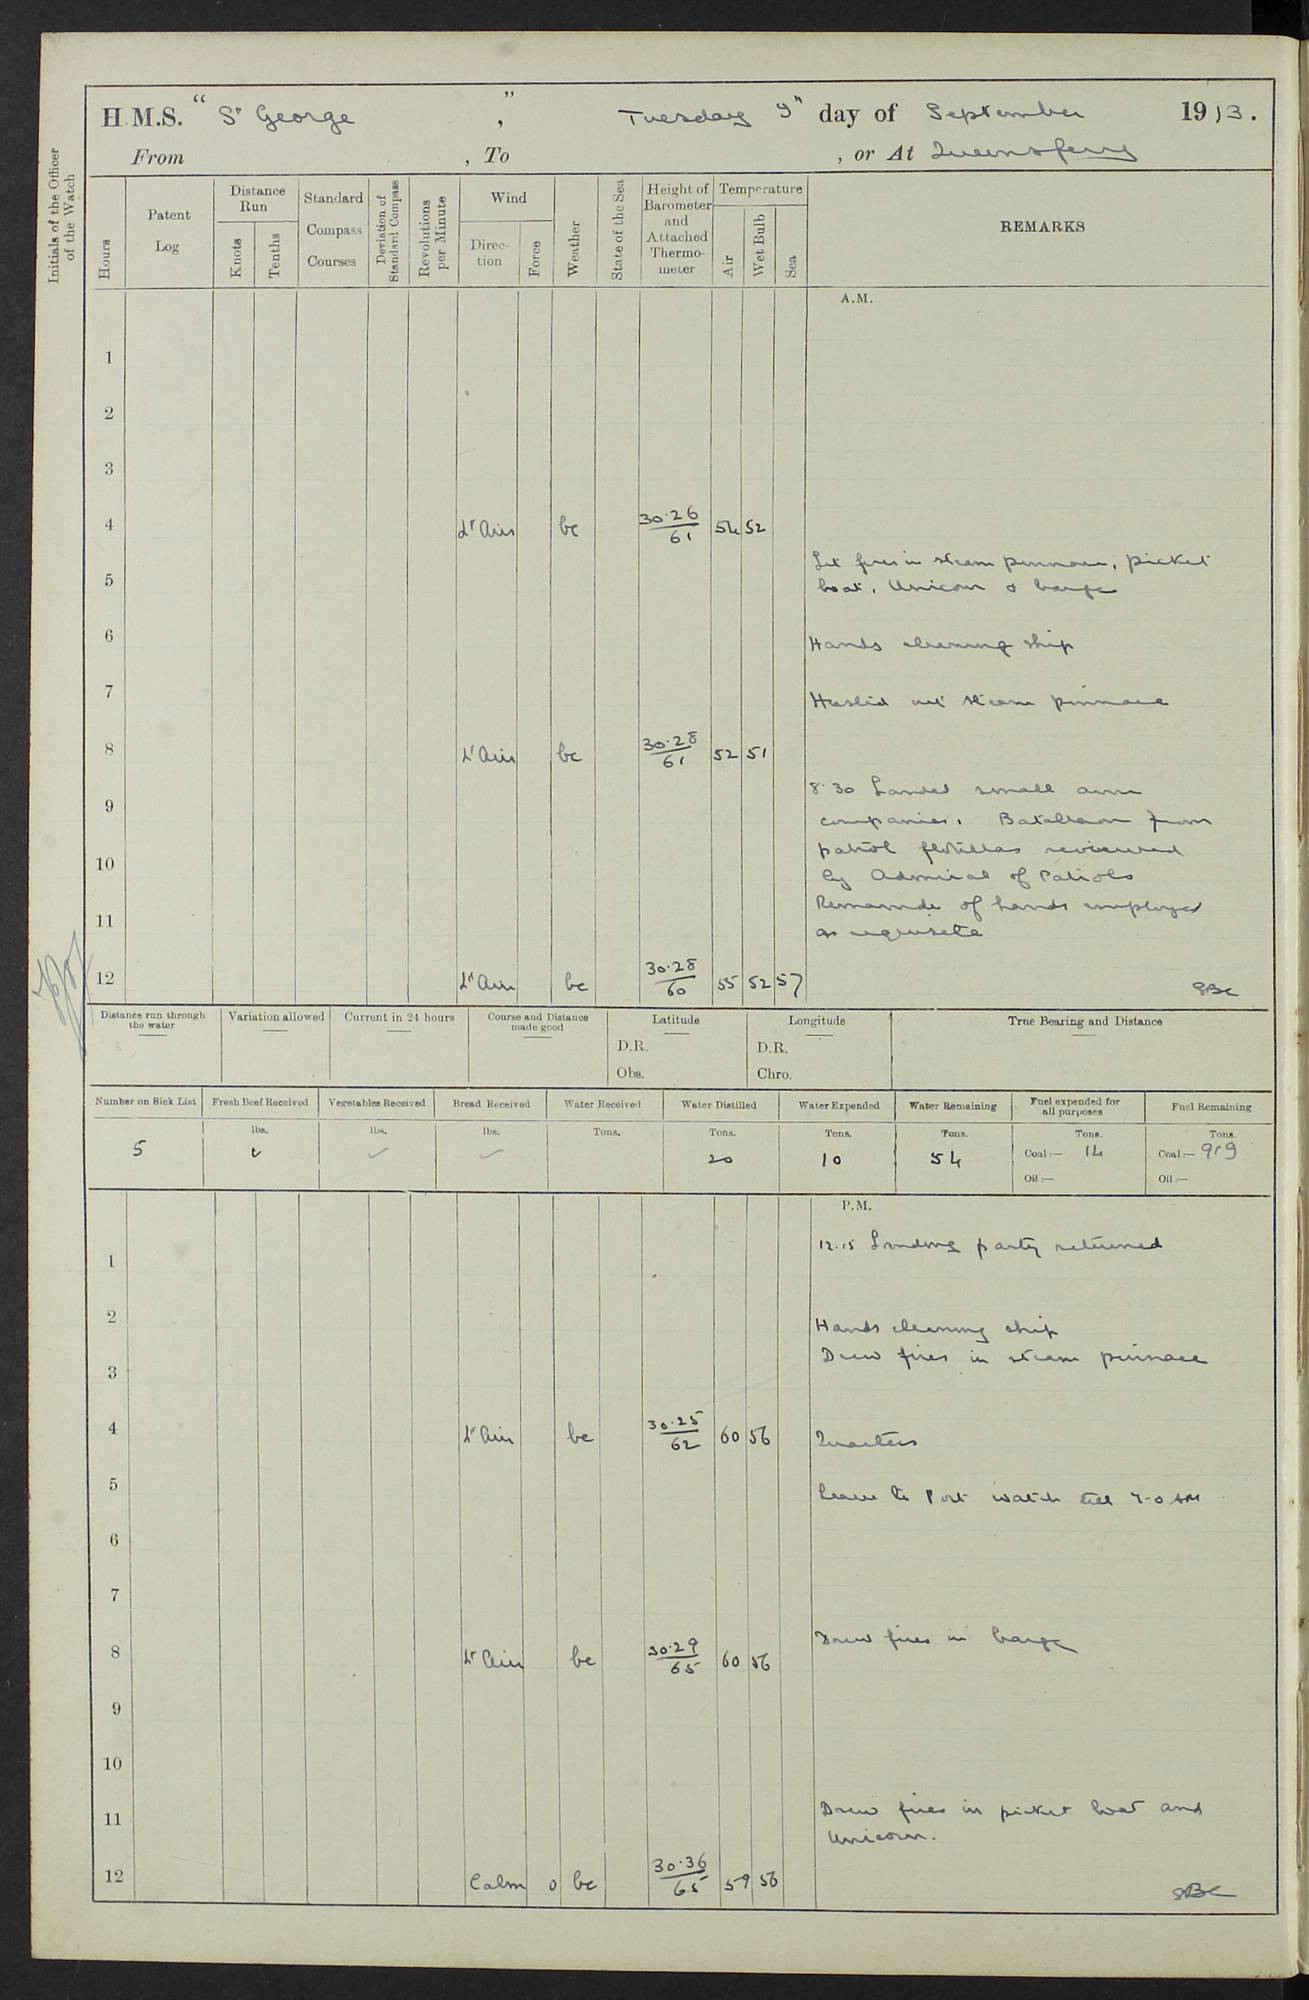 H.M.S. "St George", Tuesday 9th day of September 1913.
From , To , or At Queensferry
Initials of the Officer of the Watch
Hours
Patent Log
Distance Run
Knots
Tenths
Standard Compass Courses
Deviation of Standard Compass
Revolutions per Minute
Wind
Direc-tion
Force
Weather
State of the Sea
Height of Barometer and Attached Thermo-meter
Temperature
Air
Wet Bulb
Sea
REMARKS
A.M.
1
2
3
4 Lt Airs bc 30.26/61 54 52
Lit fires in steam pinnace, picket
5 boat, Unicorn & barge
6 Hands cleaning ship
7 Hoisted out steam pinnace
8 Lt Airs bc 30.28/61 52 51
8.30 Landed small arm
9 companies. Battalion from
patrol flotillas reviewed
10 by Admiral of Patrols
Remainder of hands employed
11 as requisite
12 Lt Airs bc 30.28/60 55 52 57
SBC
Distance run through the water
Variation allowed
Current in 24 hours
Course and Distance made good
Latitude
D.R.
Obs.
Longitude
D.R.
Chro.
True Bearing and Distance
Number on Sick List
Fresh Beef Received
Vegetables Received
Bread Received
Water Received
Water Distilled
Water Expended
Water Remaining
Fuel expended for all purposes
Fuel Remaining
lbs. lbs. lbs. Tons. Tons. Tons. Tons. Tons. Tons.
5 ✓ ✓ ✓ 20 10 54 Coal:— 14 Coal:— 919
Oil:— Oil:—
P.M.
12.15 Landing party returned
1
2 Hands cleaning ship
Drew fires in steam pinnace
3
4 Lt Airs bc 30.25/62 60 56 Quarters
5 Leave to Port watch till 7-0 AM
6
7
Drew fires in barge
8 Lt Airs bc 30.29/65 60 56
9
10
11 Drew fires in picket boat and
Unicorn.
12 Calm 0 bc 30.36/65 59 56
SBC